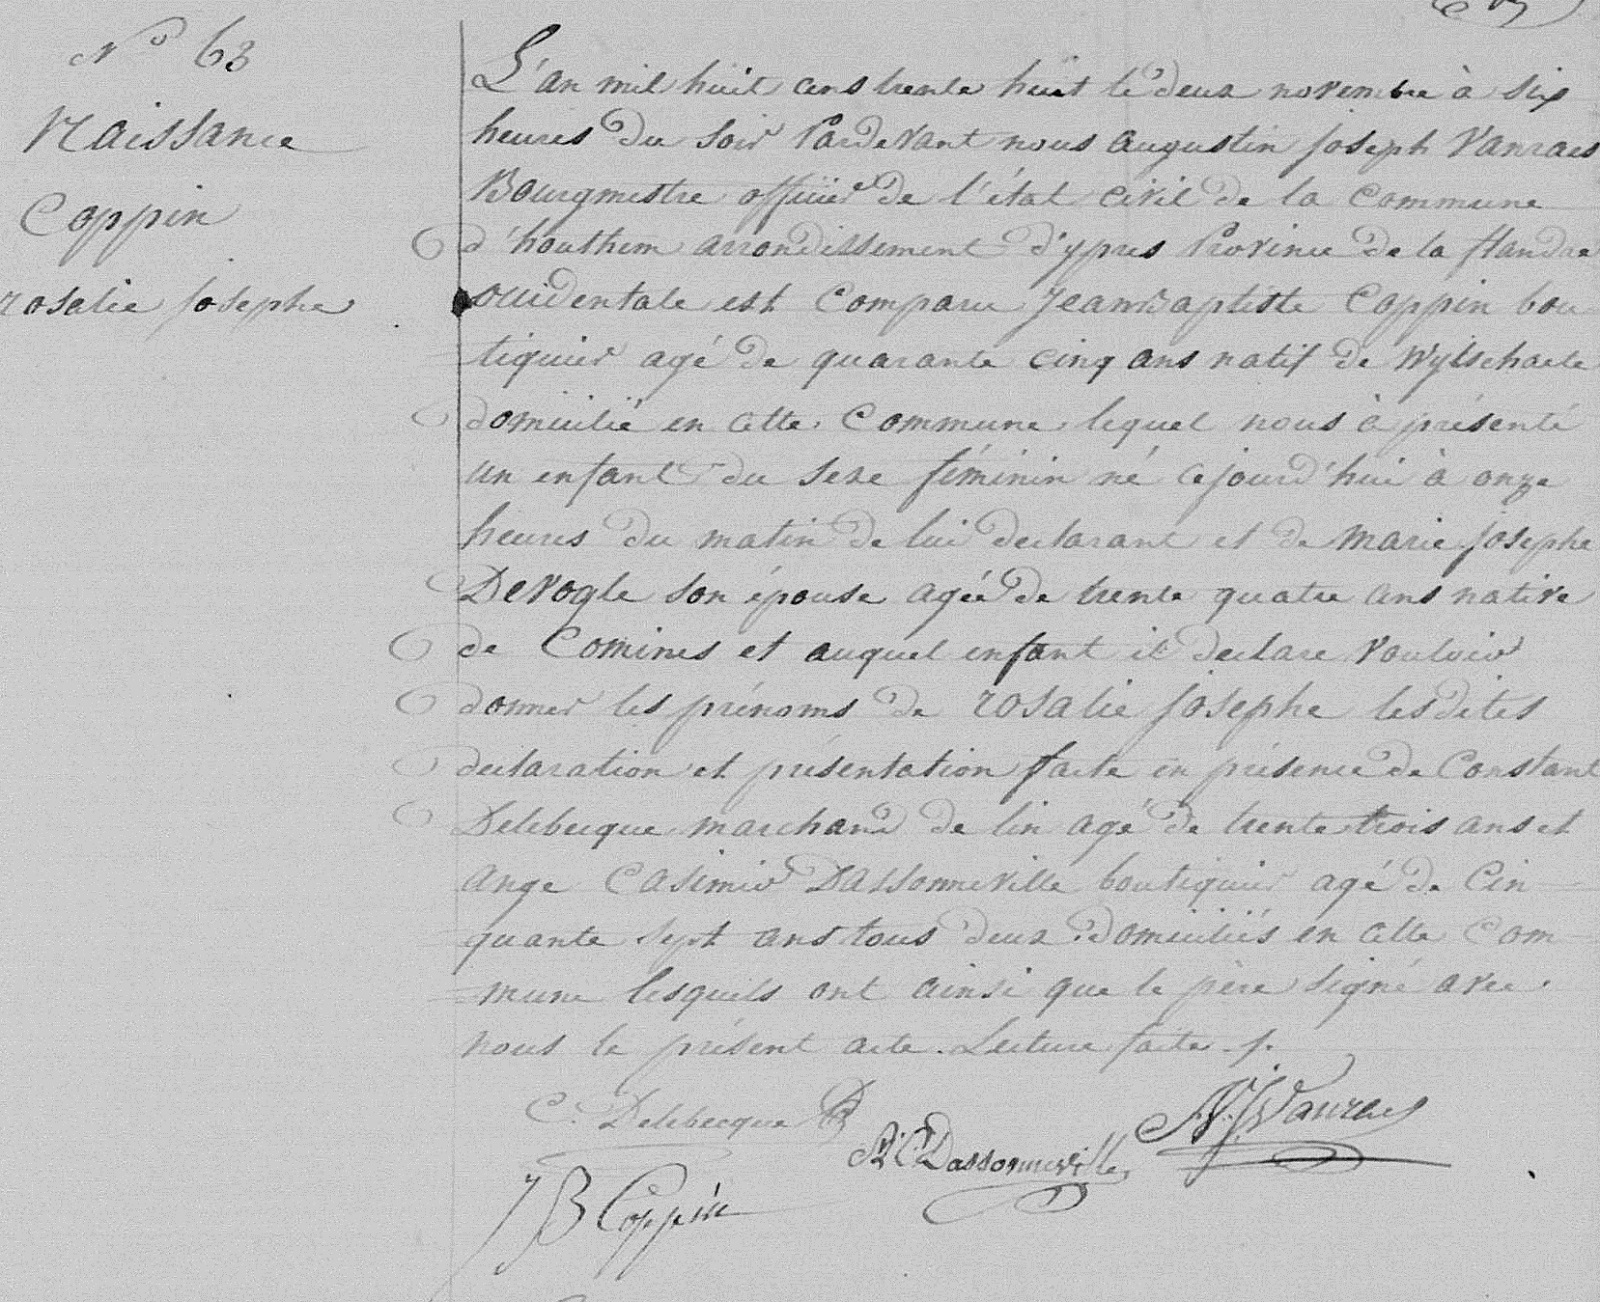 N° 63
Naissance
Coppin
rosalie josephe
L'an mil huit cens trente huit le deux novembre à six
heures du soir Pardevant nous augustin joseph Vanraes
Bourgmestre officier de l'état civil de la Commune
d'houthem arrondissement d'ypres Province de la flandre
occidentale est Comparu Jean Baptiste Coppin bou
tiquier agé de quarante cinq ans natif de Wytschaete
domicilié en cette Commune lequel nous à présenté
un enfant du sexe féminin né cejourd'hui à onze
heures du matin de lui declarant et de marie josephe
Devogle son épouse agée de trente quatre ans native
de Comines et auquel enfant il declare Vouloir
donner les prénoms de rosalie josephe lesdites
declaration et présentation faite en présence de Constant
Delebecque marchand de lin agé de trente trois ans et
ange Casimir Dassonneville boutiquier agé de Cin
quante sept ans tous deux domiciliés en cette Com
mune lesquels ont ainsi que le père signé avec
nous le présent acte. Lecture faite ./.
C. Delebecque
A.C. Dassonneville
A.J. Vanraes
JB Coppin